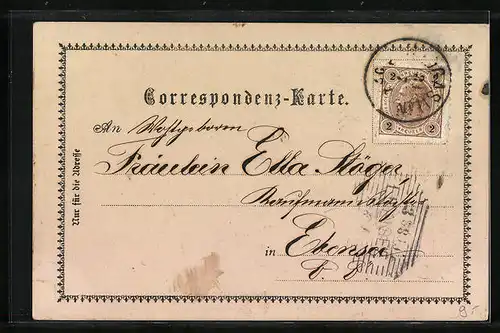 Correspondenz-Karte.
2 2
2 2
An Wohlgeboren
Fräulein Ella Stöger
Kaufmannstochter
in Ebensee
Nur für die Adresse